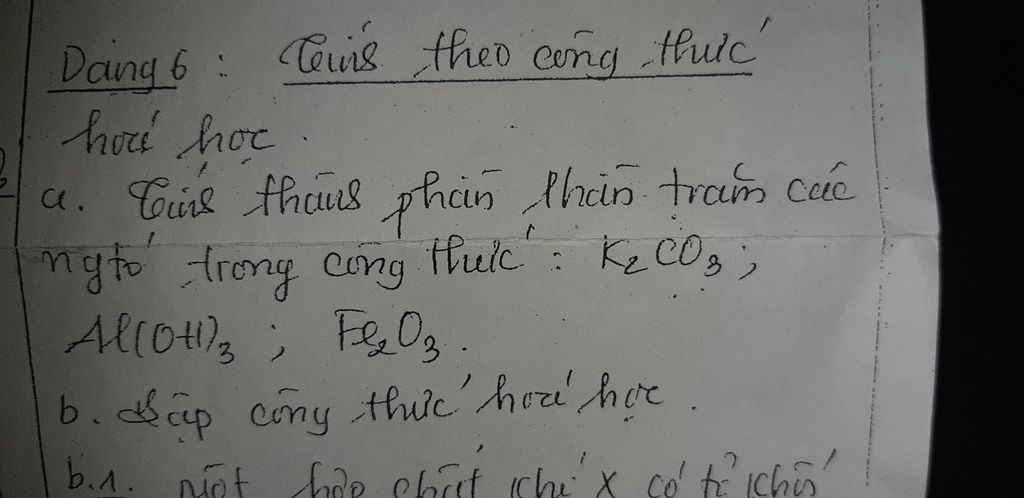 Dạng 6 : Tính theo công thức
hoá học .
a. Tính thành phần phần trăm các
ngtố trong công thức : K₂CO₃ ;
Al(OH)₃ ; Fe₂O₃ .
b. Lập công thức hoá học .
b.1. Một hợp chất khí X có tỉ khối